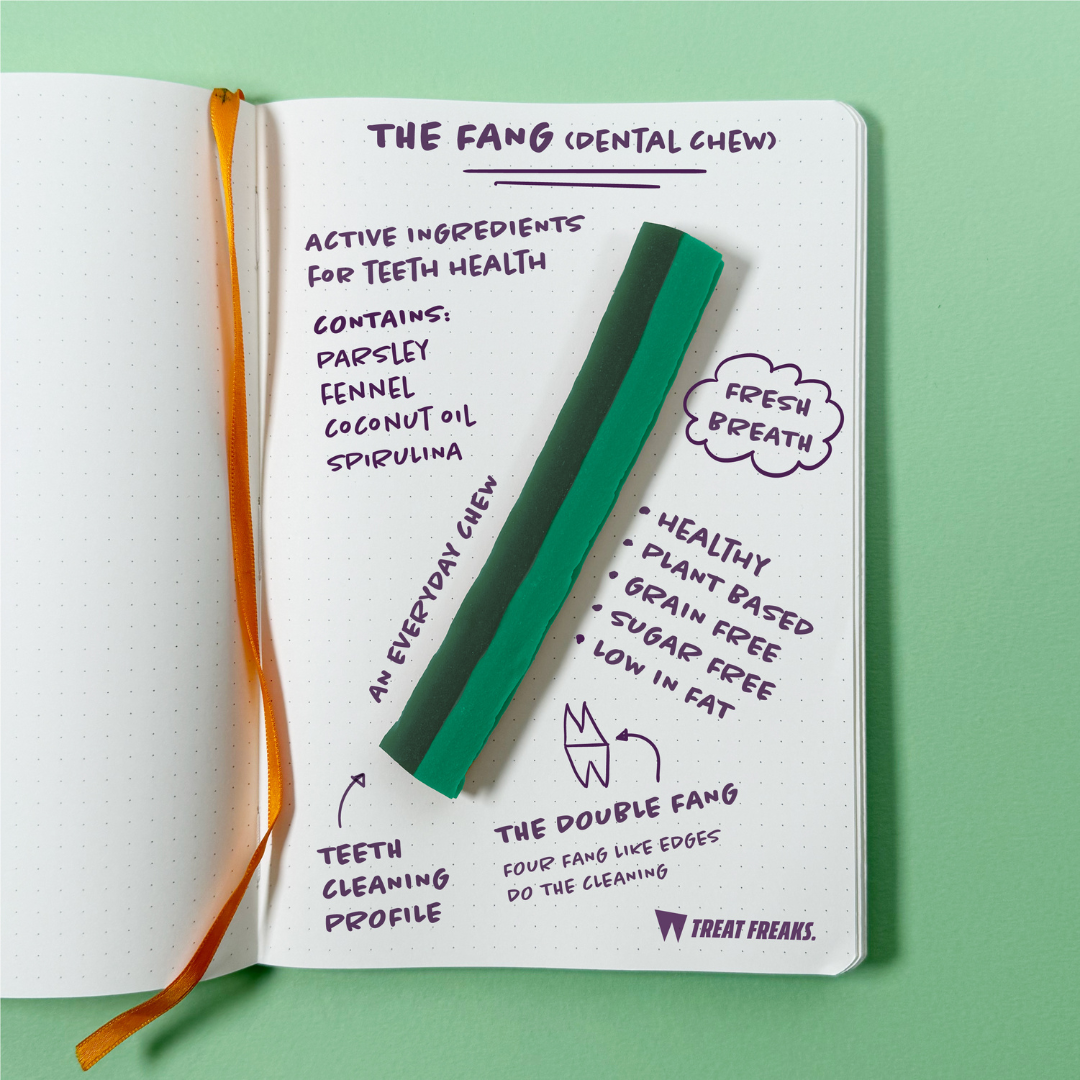 THE FANG (DENTAL CHEW)
ACTIVE INGREDIENTS
FOR TEETH HEALTH
CONTAINS:
PARSLEY
FENNEL
COCONUT OIL
SPIRULINA
AN EVERYDAY CHEW
FRESH
BREATH
• HEALTHY
• PLANT BASED
• GRAIN FREE
• SUGAR FREE
• LOW IN FAT
TEETH
CLEANING
PROFILE
THE DOUBLE FANG
FOUR FANG LIKE EDGES
DO THE CLEANING
TREAT FREAKS.